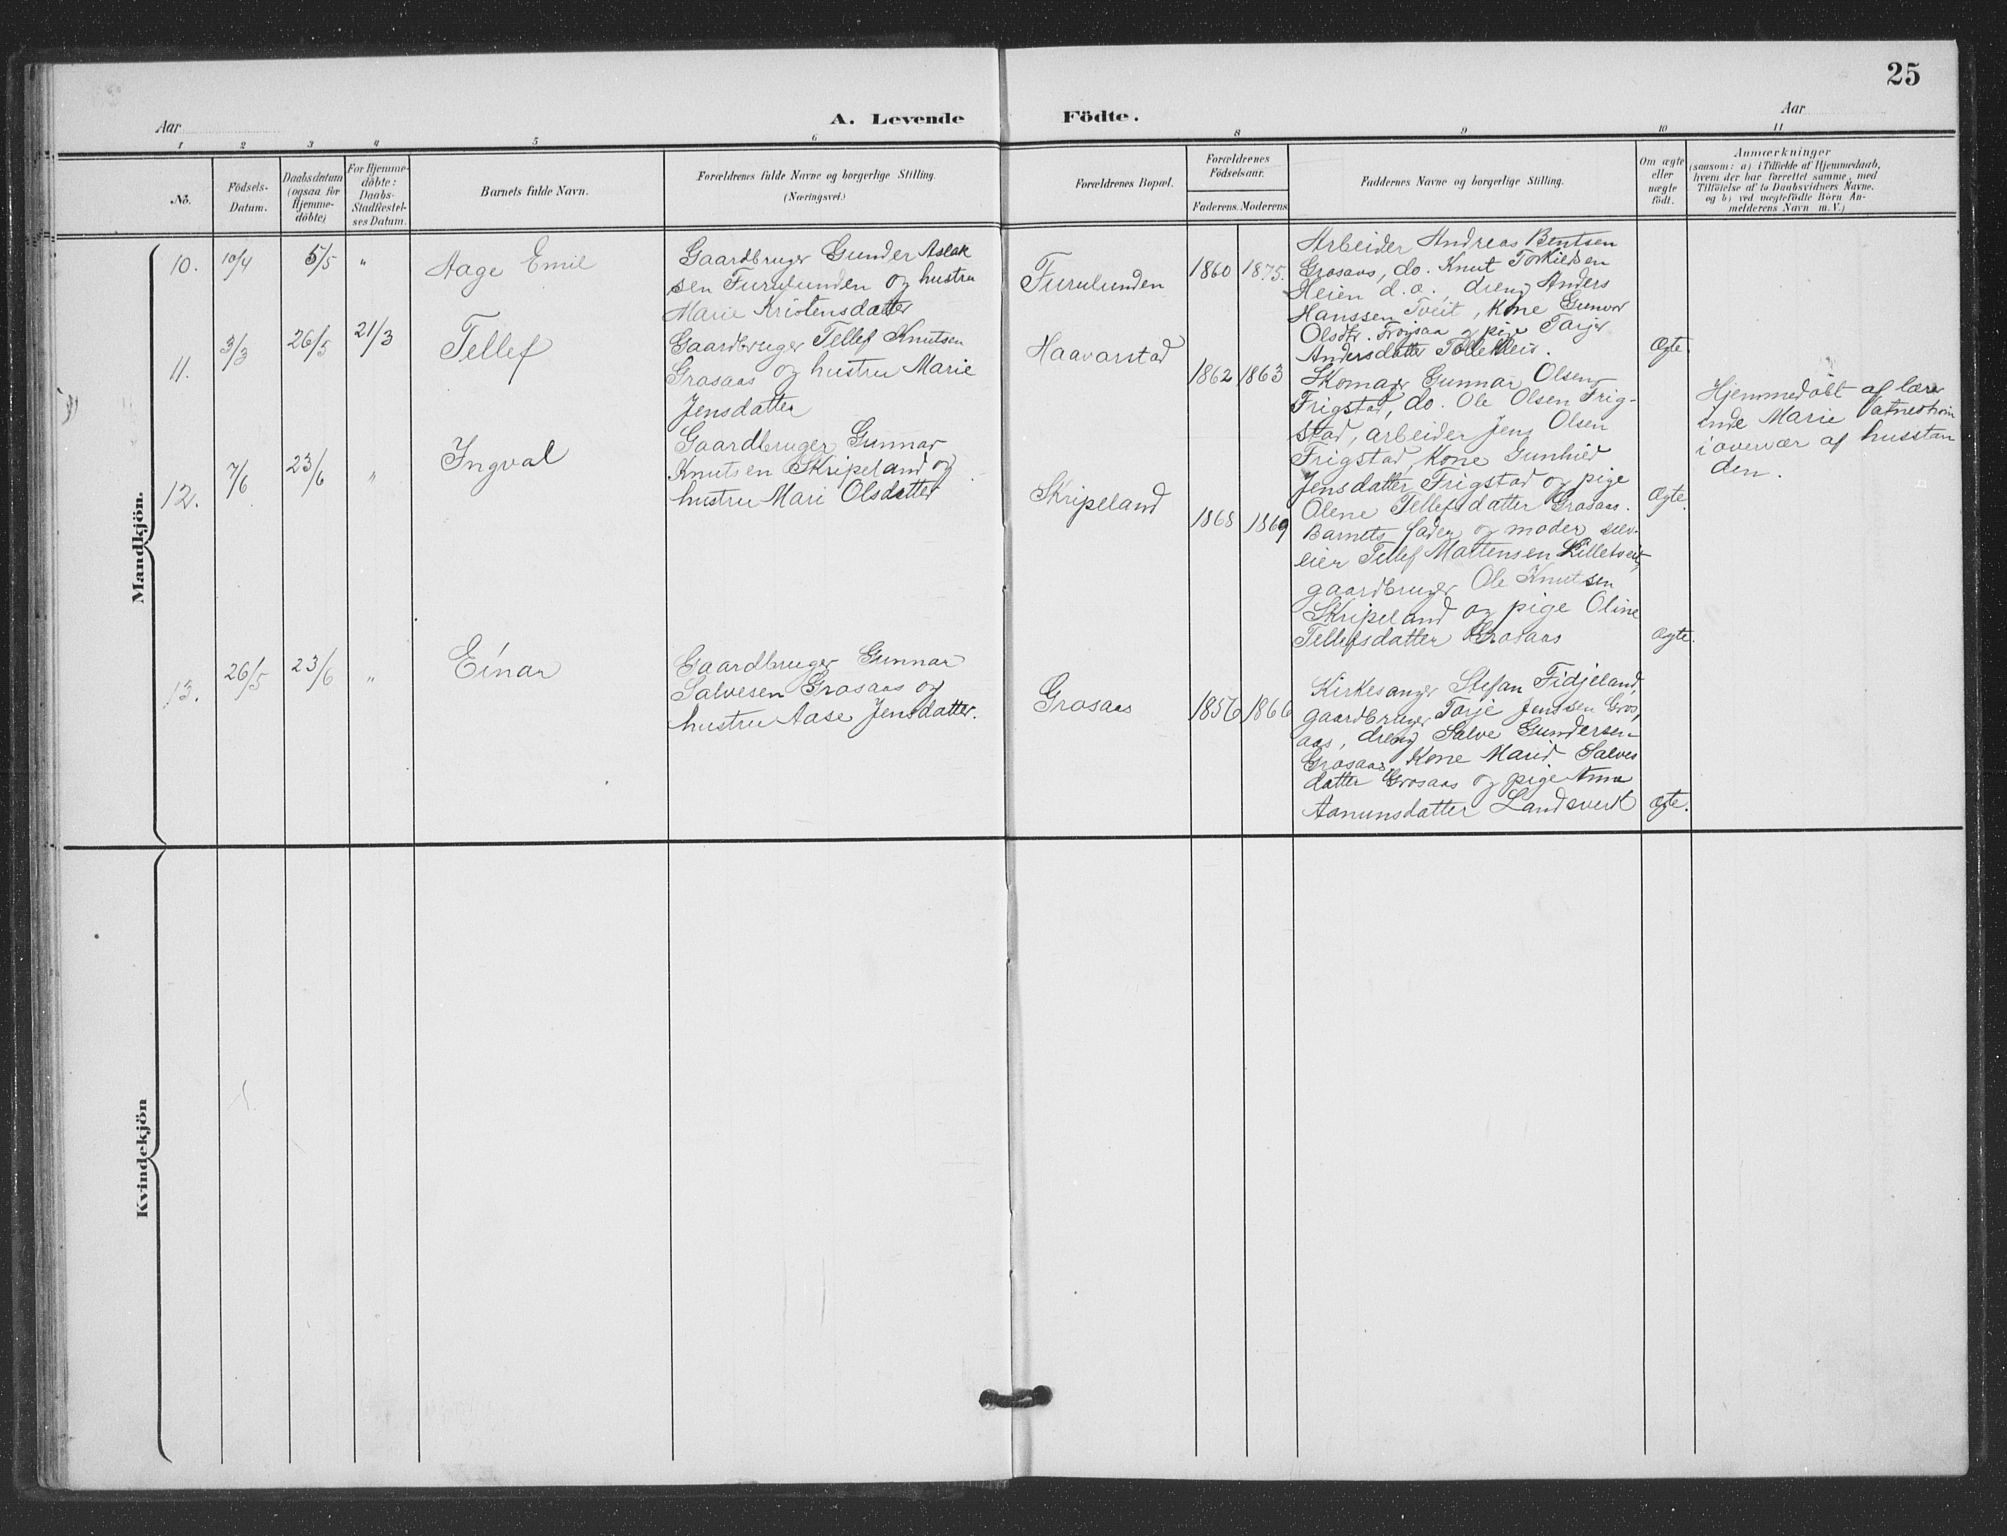 25
Aar
A. Levende Födte.
Aar
1 2 3 4 5 6 8 9 10 11
No.
Födsels-
Datum.
Daabsdatum
(ogsaa for
Hjemme-
döbte)
For Hjemme-
döbte:
Daabs-
Stadfæstel-
ses Datum.
Barnets fulde Navn.
Forældrenes fulde Navne og borgerlige Stilling.
(Næringsvei.)
Forældrenes Bopæl.
Forældrenes
Födselsaar.
Faderens. Moderens
Faddernes Navne og borgerlige Stilling.
Om ægte
eller
uægte
födt.
Anmærkninger
(saasom: a) i Tilfælde af Hjemmedaab,
hvem der har forrettet samme, med
Tilföielse af to Daabsvidners Navne.
og b) ved uægtefödte Börn An-
melderens Navn m. V.)
Mandkjön.
10. 10/4 5/5 " Aage Emil
Gaardbruger Gunder Aslak
sen Furulunden og hustru
Marie Kristensdatter
Furulunden
1860 1875.
Arbeider Andreas Bentsen
Grosaas, do. Knut Torkildsen
Heien d.o. dreng Anders
Hanssen Tveit, Kone Gunvor
Olsdtr. Frøysaa og pige Torje
Andersdatter
Ægte.
11. 3/3 26/5 21/3 Tellef
Gaardbruger Tellef Knutsen
Grosaas og hustru Marie
Jensdatter
Haavorstad
1862 1863
Skomager Gunnar Olsen
Frigstad, do. Ole Olsen Frig-
stad, arbeider Jens Olsen
Frigstad, Kone Gunhild
Jensdatter Frigstad og pige
Olene Tellefsdatter Grosaas.
Ægte.
Hjemmedöbt af lærer
inde Marie Vatnestrøm
i overvær af husstan
den.
12. 7/6 23/6 " Ingval
Gaardbruger Gunnar
Knutsen Skripeland og
hustru Mari Olsdatter
Skripeland
1868 1869
Barnets fader og moder, selv-
eier Tellef Mattensen Lilletveit,
gaardbruger Ole Knutsen
Skripeland og pige Oline
Tellefsdatter Grosaas
Ægte.
13. 26/5 23/6 " Einar
Gaardbruger Gunnar
Salvesen Grosaas og
hustru Aase Jensdatter.
Grosaas
1856 1866
Kirkesanger Stefan Fidjeland,
gaardbruger Torje Jenssen Gros,
aas, dreng Salve Gundersen
Grosaas, Kone Marid Salves
datter Grosaas og pige Anna
Aanunsdatter Landsverk
Ægte.
Kvindekjön